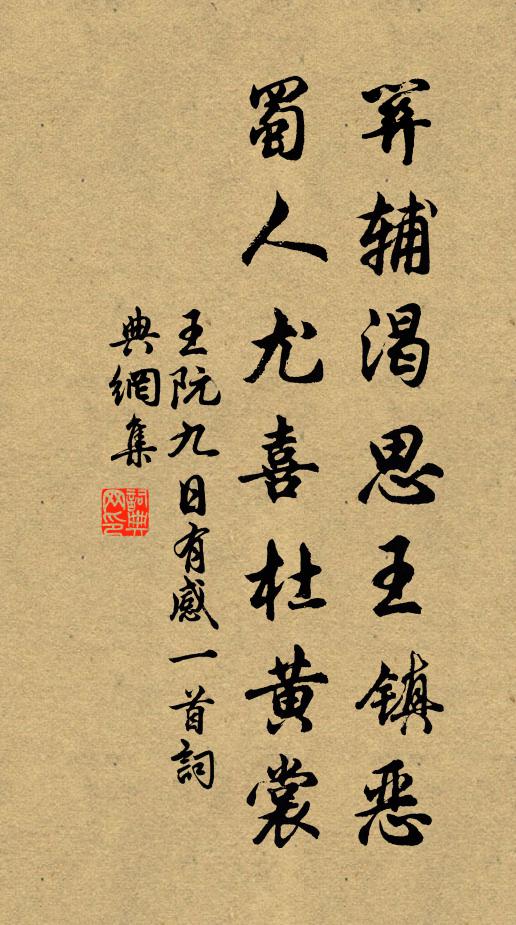 关辅渴思王镇恶
蜀人尤喜杜黄裳
王阮九日有感一首詞
典網集
詞典网印